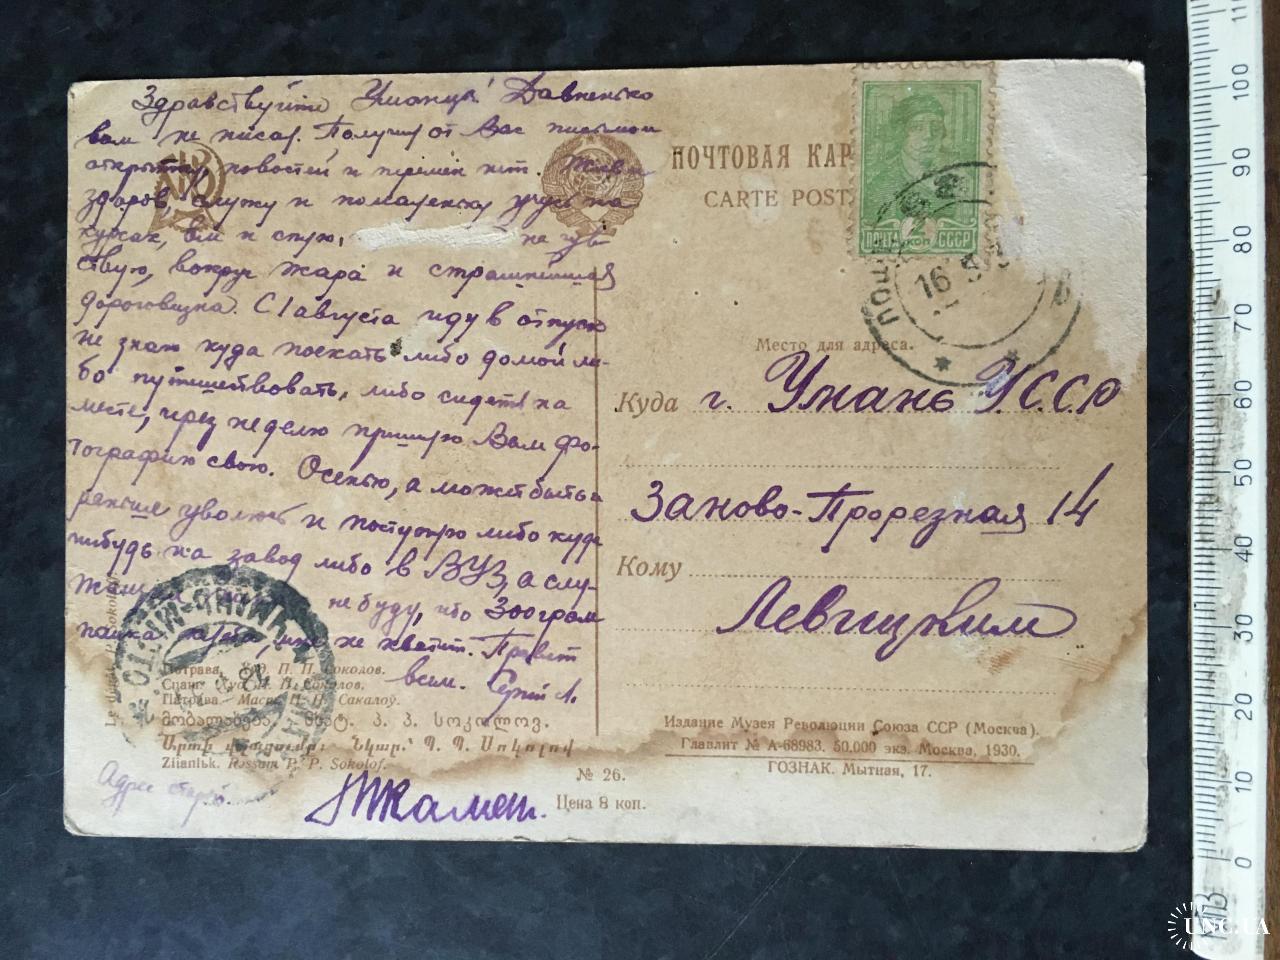 Здравствуйте Уманцы! Давненько
вам не писал. Получил от Вас письмом
открытку, новостей и премен нет. Жив и
здоров, служу и помаленьку учусь на
курсах, ем и сплю, не чув-
ствую, вокруг жара и страшнейшая
дороговизна. С 1 августа иду в отпуск
не знаю куда поехать либо домой ли-
бо путешествовать, либо сидеть на
месте, через неделю пришлю Вам фо-
тографию свою. Осенью, а может быть и
раньше уволюсь и поступлю либо куда
нибудь на завод либо в ВУЗ, а слу-
не буду, ибо
хлеба, не хватит. Привет
всем. Сергей Л.
Адрес старый
ПОЧТОВАЯ КАР
CARTE POST
ПОЧТА 2 КОП СССР
16 5
Место для адреса.
Куда г. Умань У.С.С.Р
Заново-Прорезная 14
Кому
Левицким
Петрава. Худ. П. П. Соколов.
Спанг. Худ. П. П. Соколов.
Пятрава - Маст. П. П. Сакалоў.
მხატ. პ. პ. სოკოლოვ.
Նկար.՝ Պ. Պ. Սոկոլով
Rəssam P. P. Sokolof.
Издание Музея Революции Союза ССР (Москва).
Главлит № А-68983. 50.000 экз. Москва, 1930.
ГОЗНАК. Мытная, 17.
№ 26.
Цена 8 коп.
0 10 20 30 40 50 60 70 80 90 100 110
UNC.UA